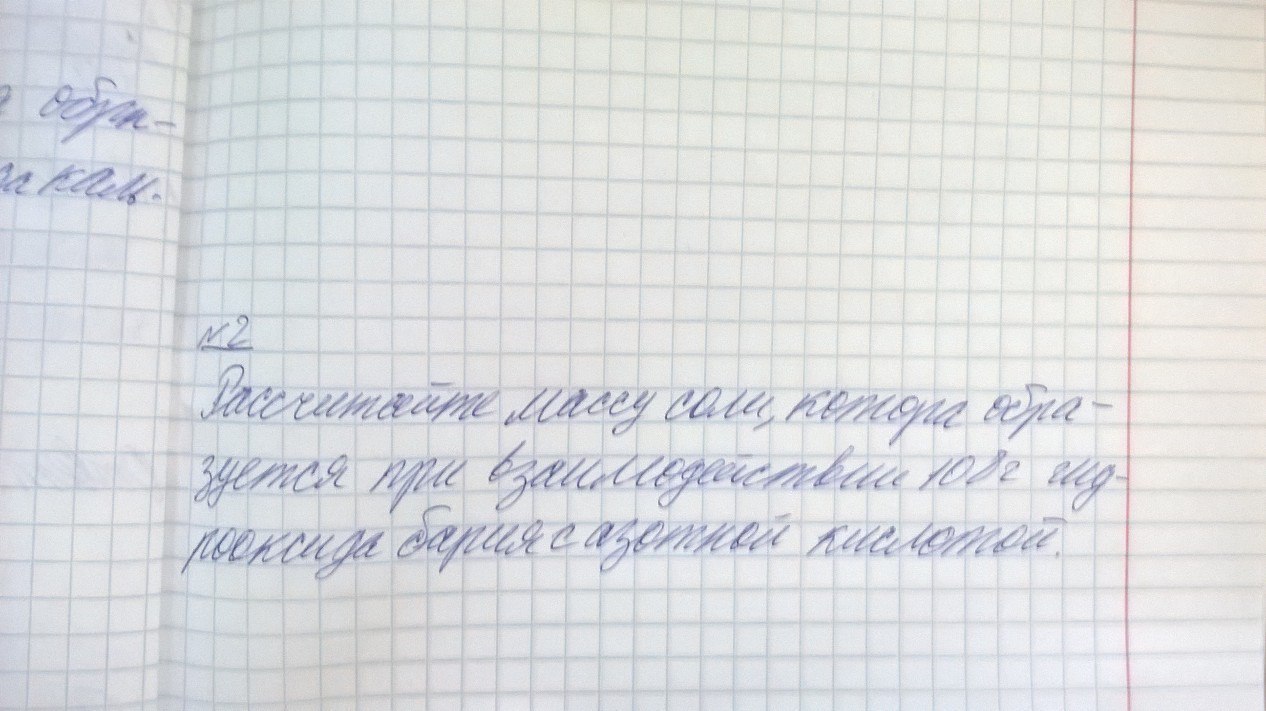 обра-
кам.
№2
Рассчитайте массу соли, котора обра-
зуется при взаимодействии 108г гид-
рооксида бария с азотной кислотой.